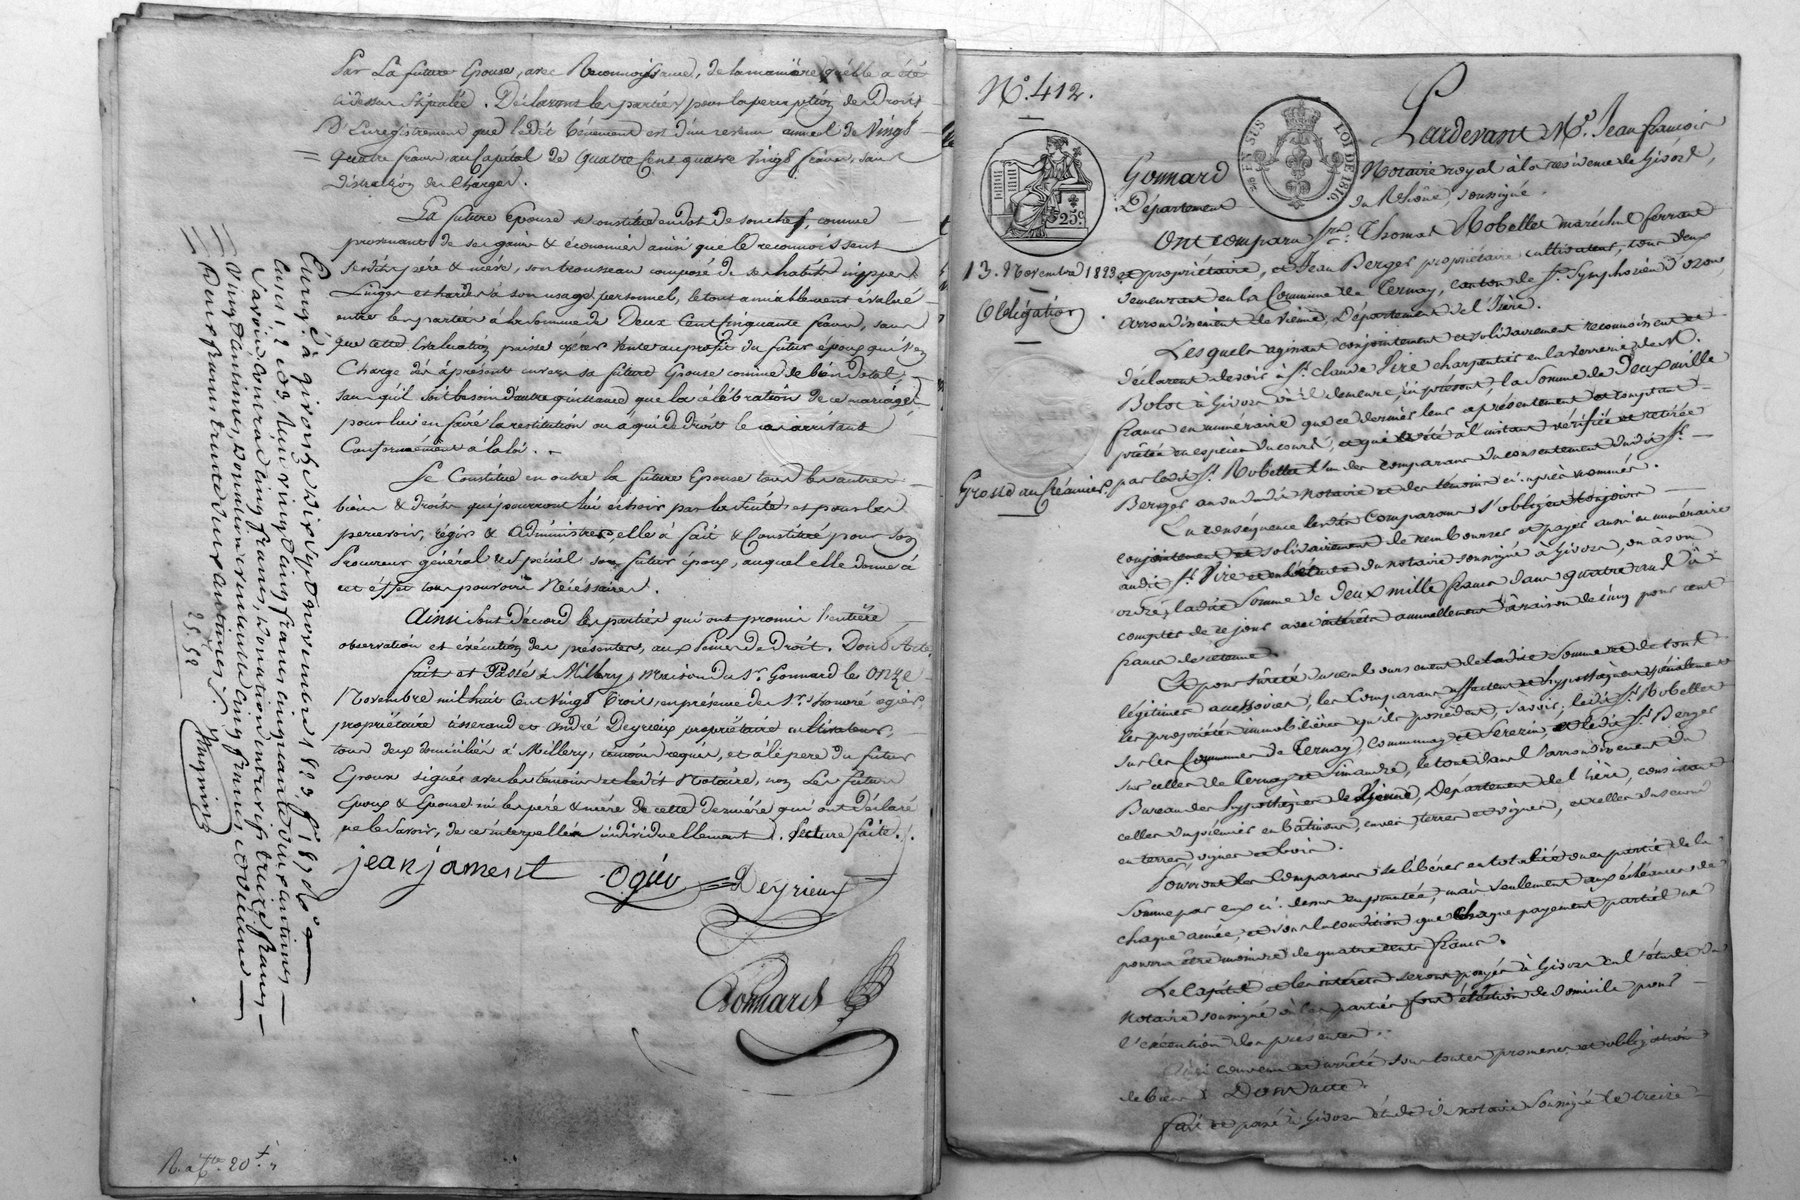 Par La future Epouse, avec Reconnoissance, de la manière qu'elle a été
cidessus Stipulée. Déclarent les parties pour la perception des Droits
D'Enregistrement que ledit tènement est d'un revenu annuel de Vingt
quatre francs au Capital de quatre Cent quatre Vingt francs, sans
distraction des Charges.
La future Epouse se constitue en dot de son chef, comme
provenant de ses gains & économies ainsi que le reconnoissent
sesdits père & mère, son trousseau composé de ses habits nippes
Linges et hardes à son usage personnel, le tout amiablement évalué
entre les parties à la Somme de Deux Cent Cinquante francs, sans
que cette évaluation puisse opérer Vente au profit du futur époux qui s'en
Charge dès àprésent envers sa future Epouse comme de bien dotal,
sans qu'il soit besoin d'autre quittance que la célébration de ce mariage
pour lui en faire la restitution ou à qui de droit le cas arrivant
Conformément à la loi.
Se Constitue en outre la future Epouse tous les autres
biens & droits qui pourront lui échoir par la Suite, et pour les
percevoir, régir & Administrer, elle a fait & Constitué pour son
Procureur général & Spécial son futur époux, auquel elle donne à
cet effet tous pouvoirs Nécéssaires.
Ainsi sont d'accord les parties qui ont promis l'entière
observation et exécution des présentes, aux Peines de Droit. Dont Acte
fait et Passé à Millery, maison du Sr. Gonnard le Onze
Novembre mil huit Cent Vingt Trois, en présence des Srs. honoré ogier,
propriétaire tisserand et André Deyrieux propriétaire cultivateur,
tous deux domiciliés à Millery, témoins requis, et à le père du futur
Epoux signés avec les témoins et ledit Notaire, non Les futurs
époux & Epouse ni les père & mère de cette dernière qui ont déclaré
ne le Savoir, de ce interpellés individuellement. Lecture faite.
jean jament
Ogier
Deyrieux
Gonnard
Enreg. à givors le dix sept novembre 1823, f°
Cases 1, 2 et 3. Reçu vingt cinq francs cinquante deux centimes
Savoir contrat cinq francs, donation entre vifs treize francs
25,52
R. a Cte. 20
N°. 412.
LOI DE 1816.
25c.
Gonnard
Département
13. Novembre 1823
Obligation
Grosse au Créancier
Pardevant Me. Jean François
Notaire royal à la résidence de Givors,
du Rhône, soussigné.
Ont comparu Srs. Thomas Robellet maréchal ferrant
et propriétaire, et Jean Berger propriétaire cultivateur, tous deux
demeurant en la Commune de Ternay, canton de St. Symphorien d'ozon,
arrondissement de Vienne, Département de l'Isère.
Lesquels agissant conjointement et solidairement reconnoissent et
déclarent devoir à Sr. claude Pire charpentier en la verrerie de M.
Bolot à Givors où il demeure, ici présent, la Somme de Deux mille
francs en numéraire que ce dernier leur a présentement et comptant
prêtée en espèces du cours, et qui a été à l'instant vérifiée et retirée
par ledit Sr. Robellet l'un des comparans du consentement dudit Sr.
Berger au vu dudit notaire et des témoins ci-après nommés.
En conséquence lesdits Comparans s'obligent
conjointement et solidairement de rembourser et payer aussi en numéraire
audit Sr. Pire en l'étude du notaire soussigné à Givors, ou à son
ordre, ladite Somme de deux mille francs dans quatre ans à
compter de ce jour avec intérêts annuellement à raison de cinq pour cent
francs de retenue.
Et pour sûreté du remboursement de ladite Somme et de tous
légitimes accessoires, les Comparans affectent et hypothèquent spécialement
les propriétés immobilières qu'ils possèdent, savoir, ledit Sr. Robellet
sur les Communes de Ternay, Communay et Serezin, et ledit Sr. Berger
sur celles de Ternay et Simandre, le tout dans l'arrondissement du
Bureau des hypothèques de Vienne, Département de l'Isère, consistant
celles du premier en bâtimens, cuves, terres et vignes, et celles du second
en terres, vignes et bois.
Pourront les Comparans se libérer en totalité ou en partie de la
Somme par eux ci-dessus empruntée, mais seulement aux échéances de
chaque année, et sous la condition que chaque payement partiel ne
pourra être moindre de quatre cents francs.
Le Capital et les intérêts seront payés à Givors en l'étude du
Notaire soussigné où les parties font élection de domicile pour
l'exécution des présentes.
Ainsi convenu et arrêté sous toutes promesses et obligations
de biens & Dont acte.
fait et passé à Givors étude du notaire Soussigné le treize